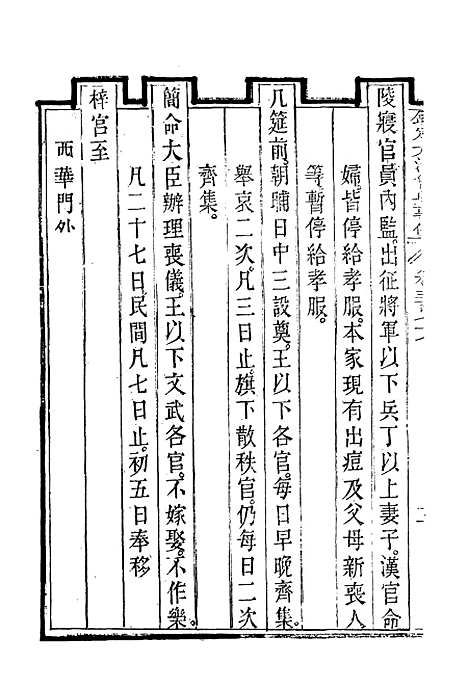 陵寢官員內監。出征將軍以下兵丁以上妻子。漢官命
婦。皆停給孝服。本家現有出痘及父母新喪人
等。暫停給孝服。
几筵前。朝晡日中三設奠。王以下各官。每日早晚齊集。
舉哀二次。凡三日止。旗下散秩官。仍每日二次
齊集。
簡命大臣辦理喪儀。王以下文武各官。不嫁娶。不作樂。
凡二十七日。民間凡七日止。初五日奉移
梓宮至
西華門外